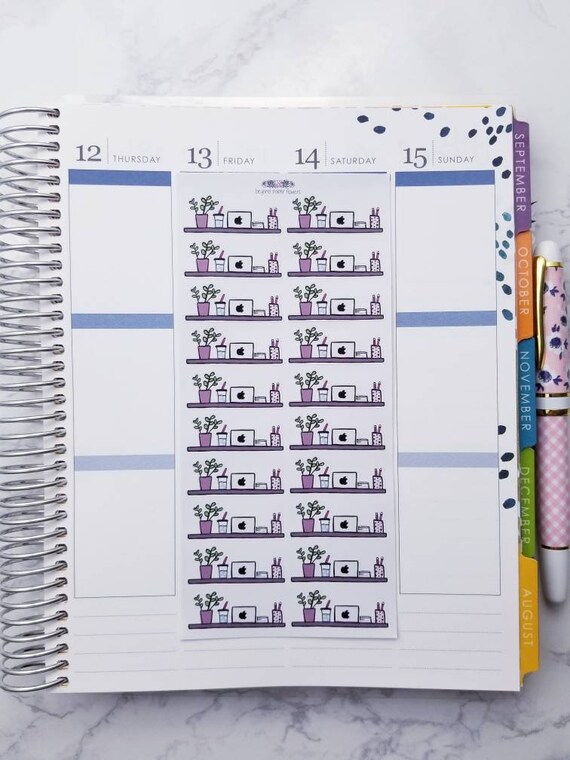 12 THURSDAY 13 FRIDAY 14 SATURDAY 15 SUNDAY
SEPTEMBER
OCTOBER
NOVEMBER
DECEMBER
AUGUST